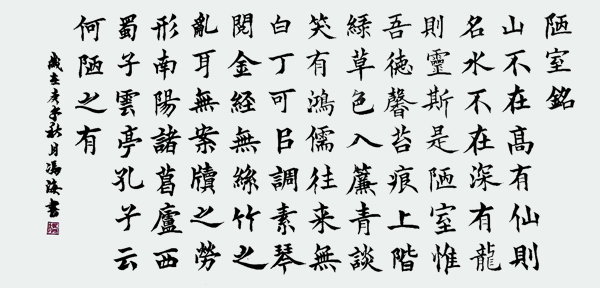 陋室銘
山不在髙有仙則
名水不在深有龍
則靈斯是陋室惟
吾德馨苔痕上階
緑草色入簾青談
笑有鴻儒往来無
白丁可㠯調素琴
閱金経無絲竹之
亂耳無案牘之勞
形南陽諸葛廬西
蜀子雲亭孔子云
何陋之有
歲在秋月馮海書